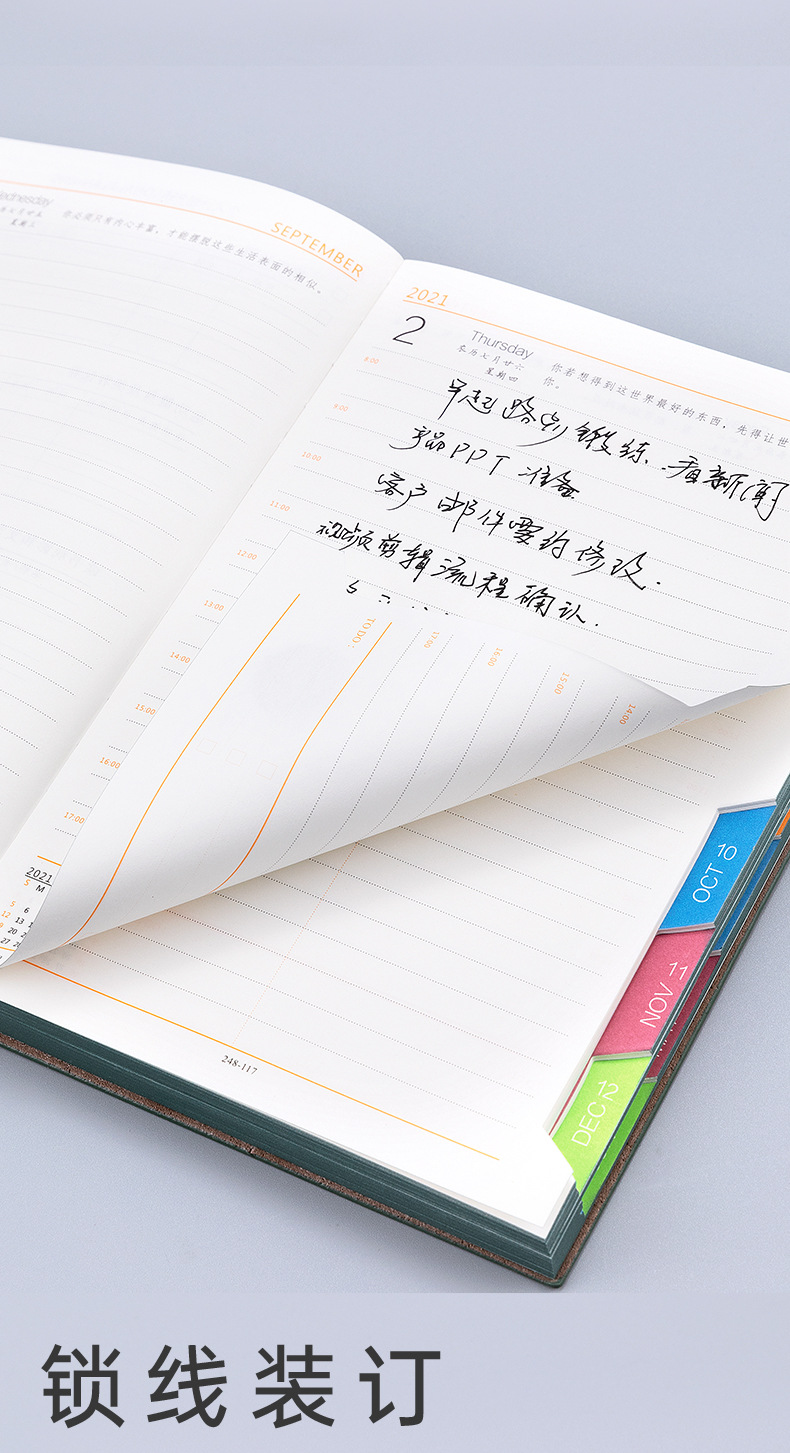 Wednesday
星期三
你必须只有内心丰富，才能摆脱这些生活表面的相似。
SEPTEMBER
2021
2
Thursday
农历七月廿六
星期四
你若想得到这世界最好的东西，先得让世
你。
8:00
9:00
10:00
11:00
12:00
13:00
14:00
15:00
16:00
17:00
早起跑步锻练.看新闻
产品PPT准备
客户邮件要约修改.
视频剪辑流程确认.
TODO:
17:00
16:00
15:00
14:00
2021
S M
5 6
12 13
19 20
27
OCT 10
NOV 11
DEC 12
248-117
锁线装订